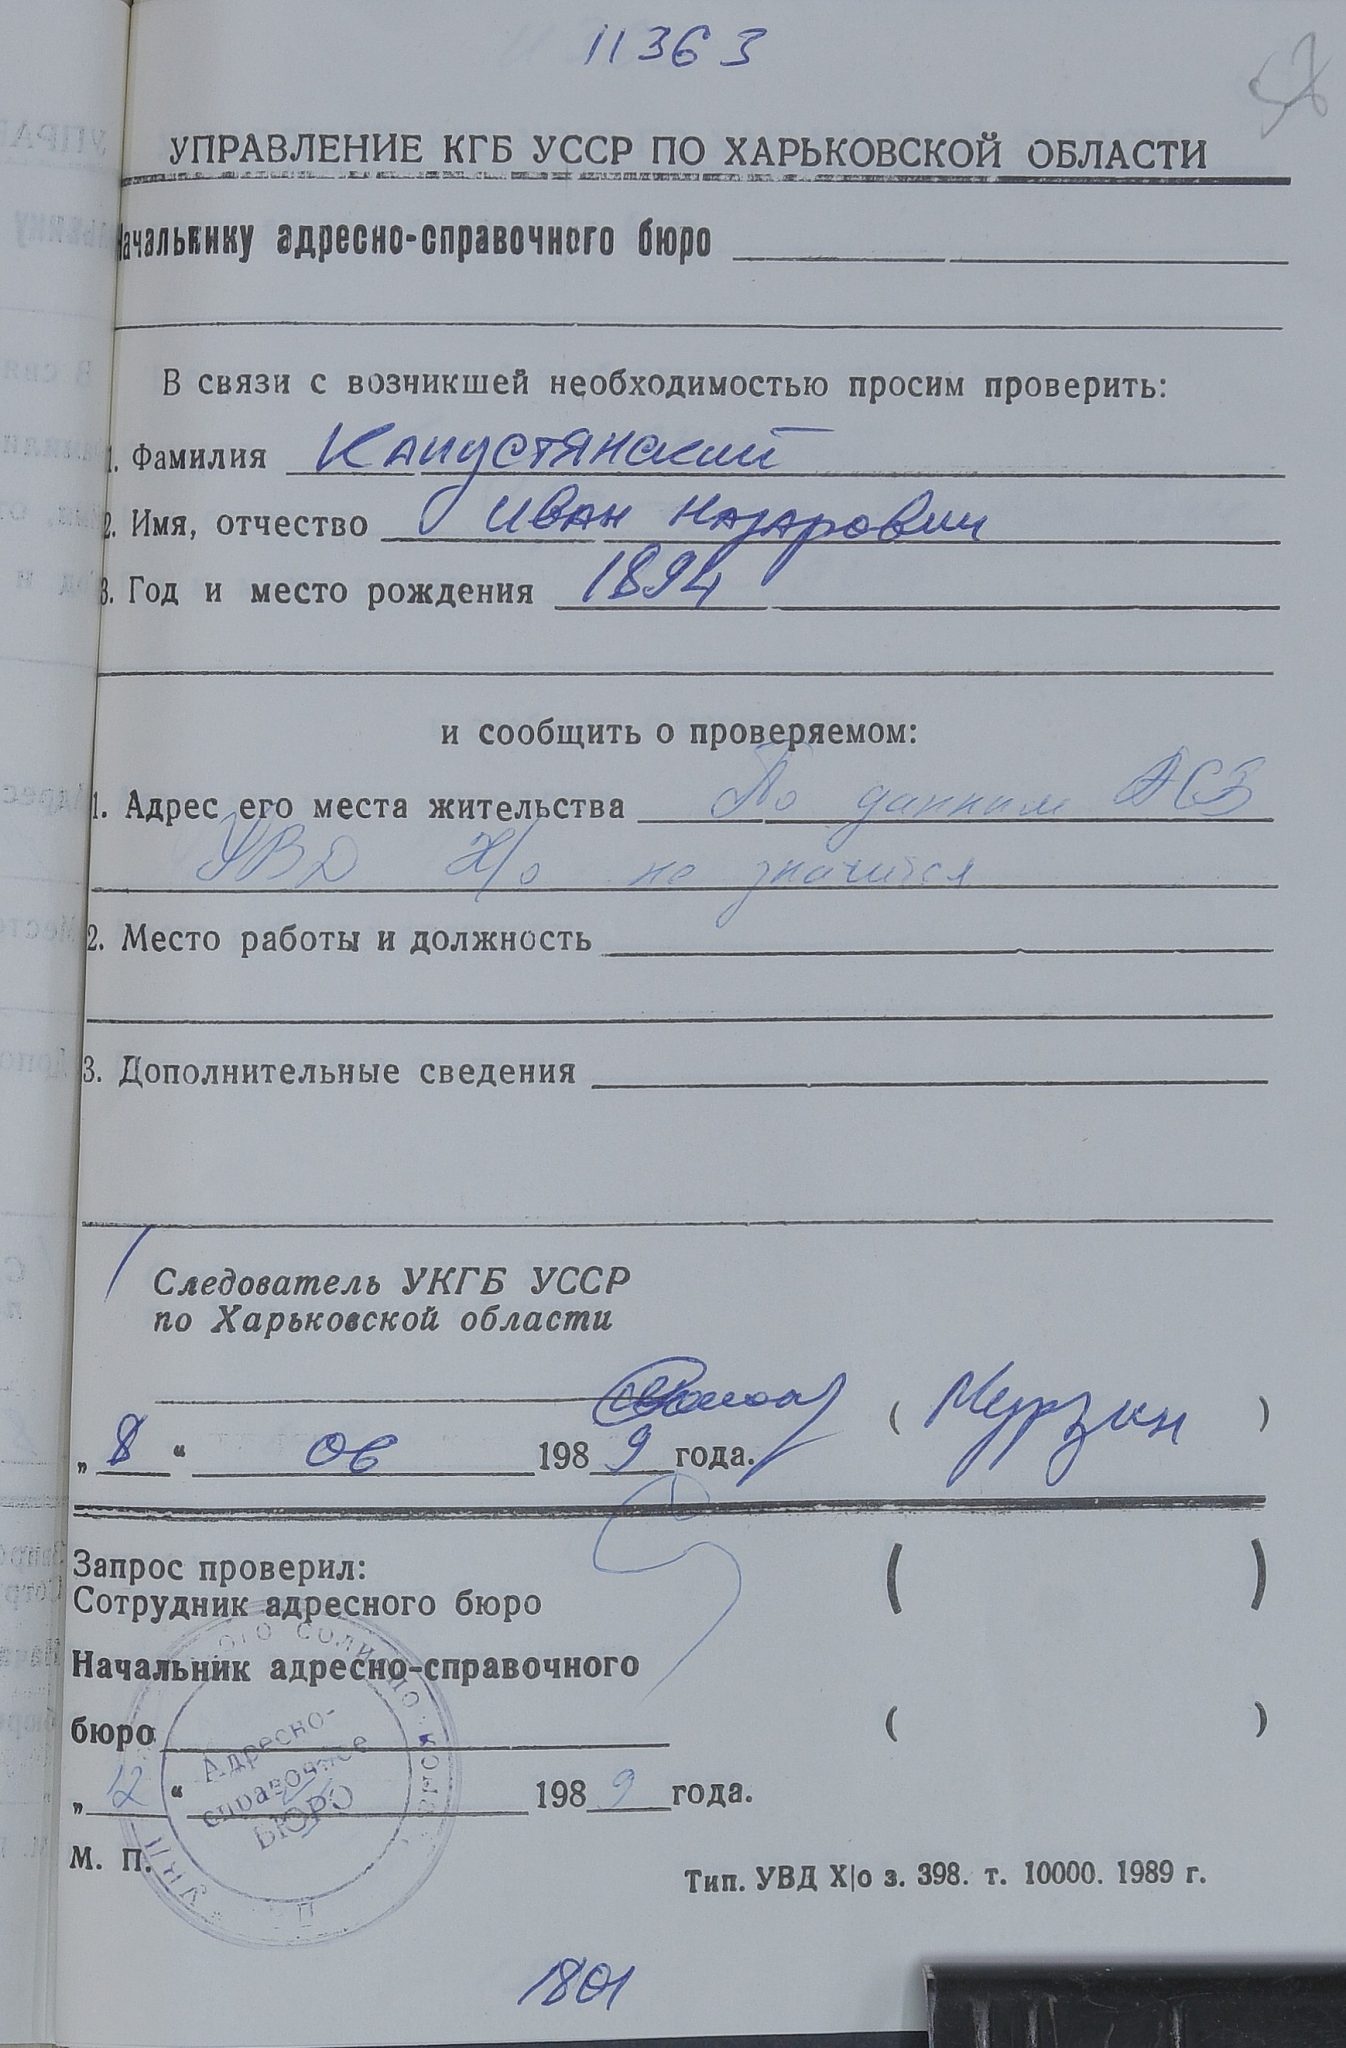 11363
57
УПРАВЛЕНИЕ КГБ УССР ПО ХАРЬКОВСКОЙ ОБЛАСТИ
Начальнику адресно-справочного бюро
В связи с возникшей необходимостью просим проверить:
1. Фамилия Капустянский
2. Имя, отчество Иван Назарович
3. Год и место рождения 1894
и сообщить о проверяемом:
1. Адрес его места жительства По данным АСБ
УВД Х/о не значится
2. Место работы и должность
3. Дополнительные сведения
Следователь УКГБ УССР
по Харьковской области
( Мурзин )
„ 8 “ 06 198 9 года.
Запрос проверил:
Сотрудник адресного бюро ( )
Начальник адресно-справочного
бюро ( )
„ 12 “ 198 9 года.
Адресно-
справочное
БЮРО
М. П.
Тип. УВД Х|о з. 398. т. 10000. 1989 г.
1801